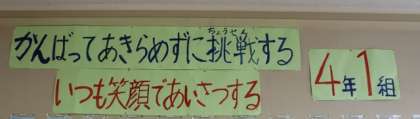 がんばってあきらめずに挑戦する
ちょうせん
いつも笑顔であいさつする
4年1組